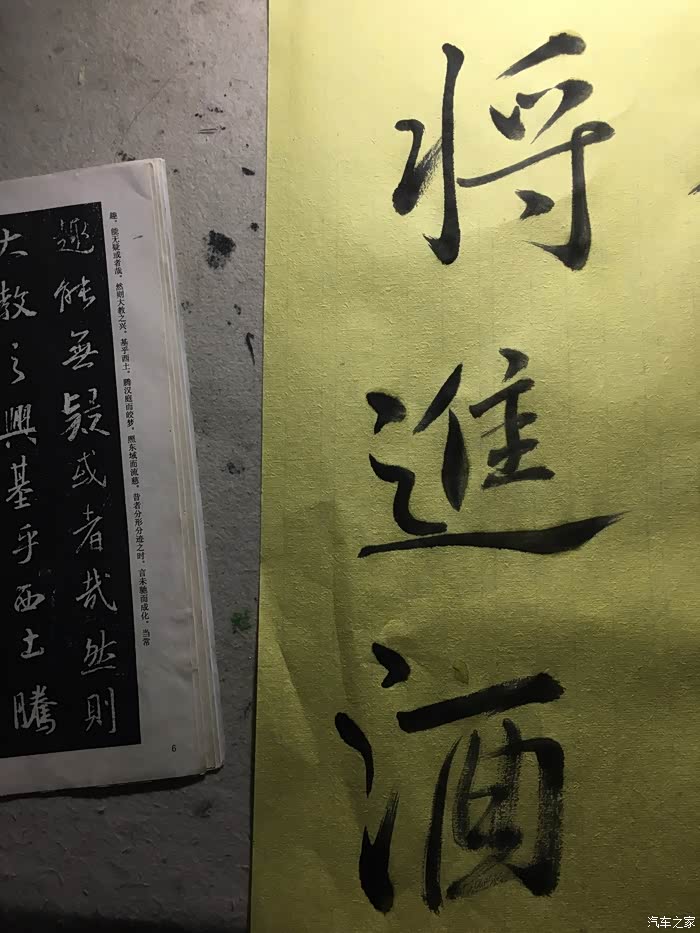 将進酒
趣能無疑或者哉然則
大教之興基乎西土騰
趣，能无疑或者哉，然则大教之兴，基乎西土，腾汉庭而皎梦，照东域而流慈，昔者分形分迹之时，言未驰而成化，当常
6
汽车之家